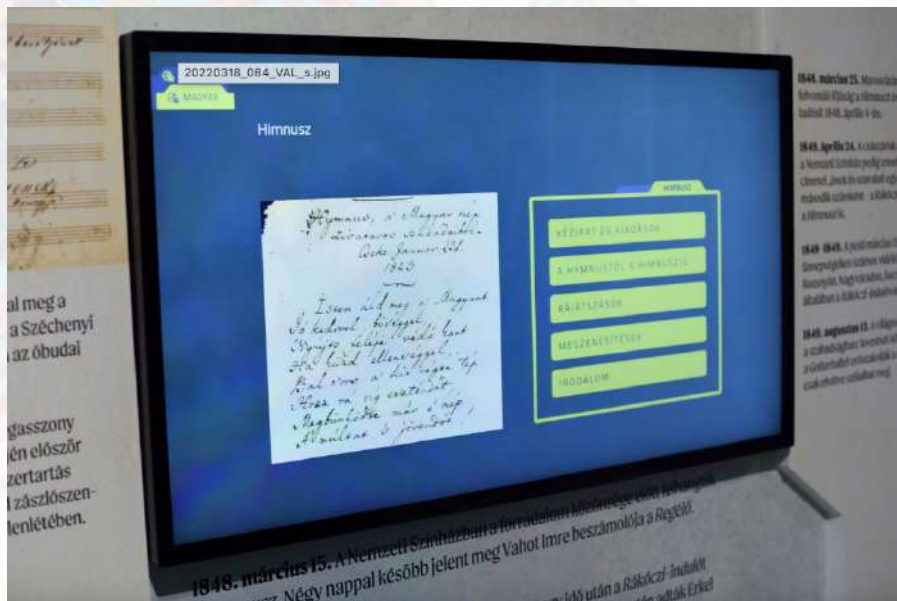 20220318_084_VAL_s.jpg
MAGYAR
Himnusz
Hymnus, a' Magyar nép
zivataros századaiból.
Cseke Januar. 22d.
1823
Isten áld meg a' Magyart
Jó kedvvel, bőséggel,
Nyújts feléje védő kart
Ha küzd ellenséggel,
Bal sors a' kit régen tép
Hozz rá víg esztendőt,
Megbűnhődte már e' nép
A' múltat 's jövendőt,
HIMNUSZ
KÉZIRAT ÉS KIADÁSOK
A HYMNUSTÓL A HIMNUSZIG
RÁJÁTSZÁSOK
MEGZENÉSÍTÉSEK
IRODALOM
al meg a
a Széchenyi
az óbudai
gasszony
én először
zertartás
zászlószen-
lenlétében.
1848. március 15. A Nemzeti Színházban a forradalom közönsége előtt felhangzik
Négy nappal később jelent meg Vahot Imre beszámolója a Regélő.
idő után a Rákóczi-Indulót
adták Erkel
1848. március 25.
1848. április 24.
a Nemzeti Színház pedig
a Himnusz is.
1848–1849. A pesti március
1849. augusztus 13. A világosi